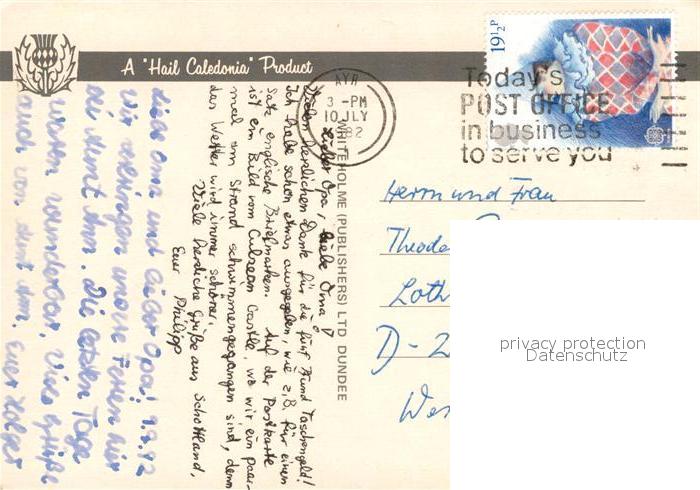 A "Hail Caledonia" Product
19½P
AYR
3 - PM
10 JLY
1982
Today's
POST OFFICE
in business
to serve you
WHITEHOLME (PUBLISHERS) LTD. DUNDEE
Lieber Opa, liebe Oma!
Vielen herzlichen Dank für die fünf Pfund Taschengeld!
Ich habe schon etwas ausgegeben, wie z.B. für einen
Satz englische Briefmarken. Auf der Postkarte
ist ein Bild vom Culzean Castle, wo wir ein paar-
mal am Strand schwimmengegangen sind, denn
das Wetter wird immer schöner.
Viele herzliche Grüße aus Schottland,
Euer Philipp
Liebe Oma und lieber Opa! 9.7.82
Wir verbringen unsere Ferien hier
bei Aunt Ann. Die letzten Tage
waren wunderbar. Viele Grüße
auch von Aunt Ann. Euer Holger
Herrn und Frau
Theodo
Loth
D-2
Wes
privacy protection
Datenschutz